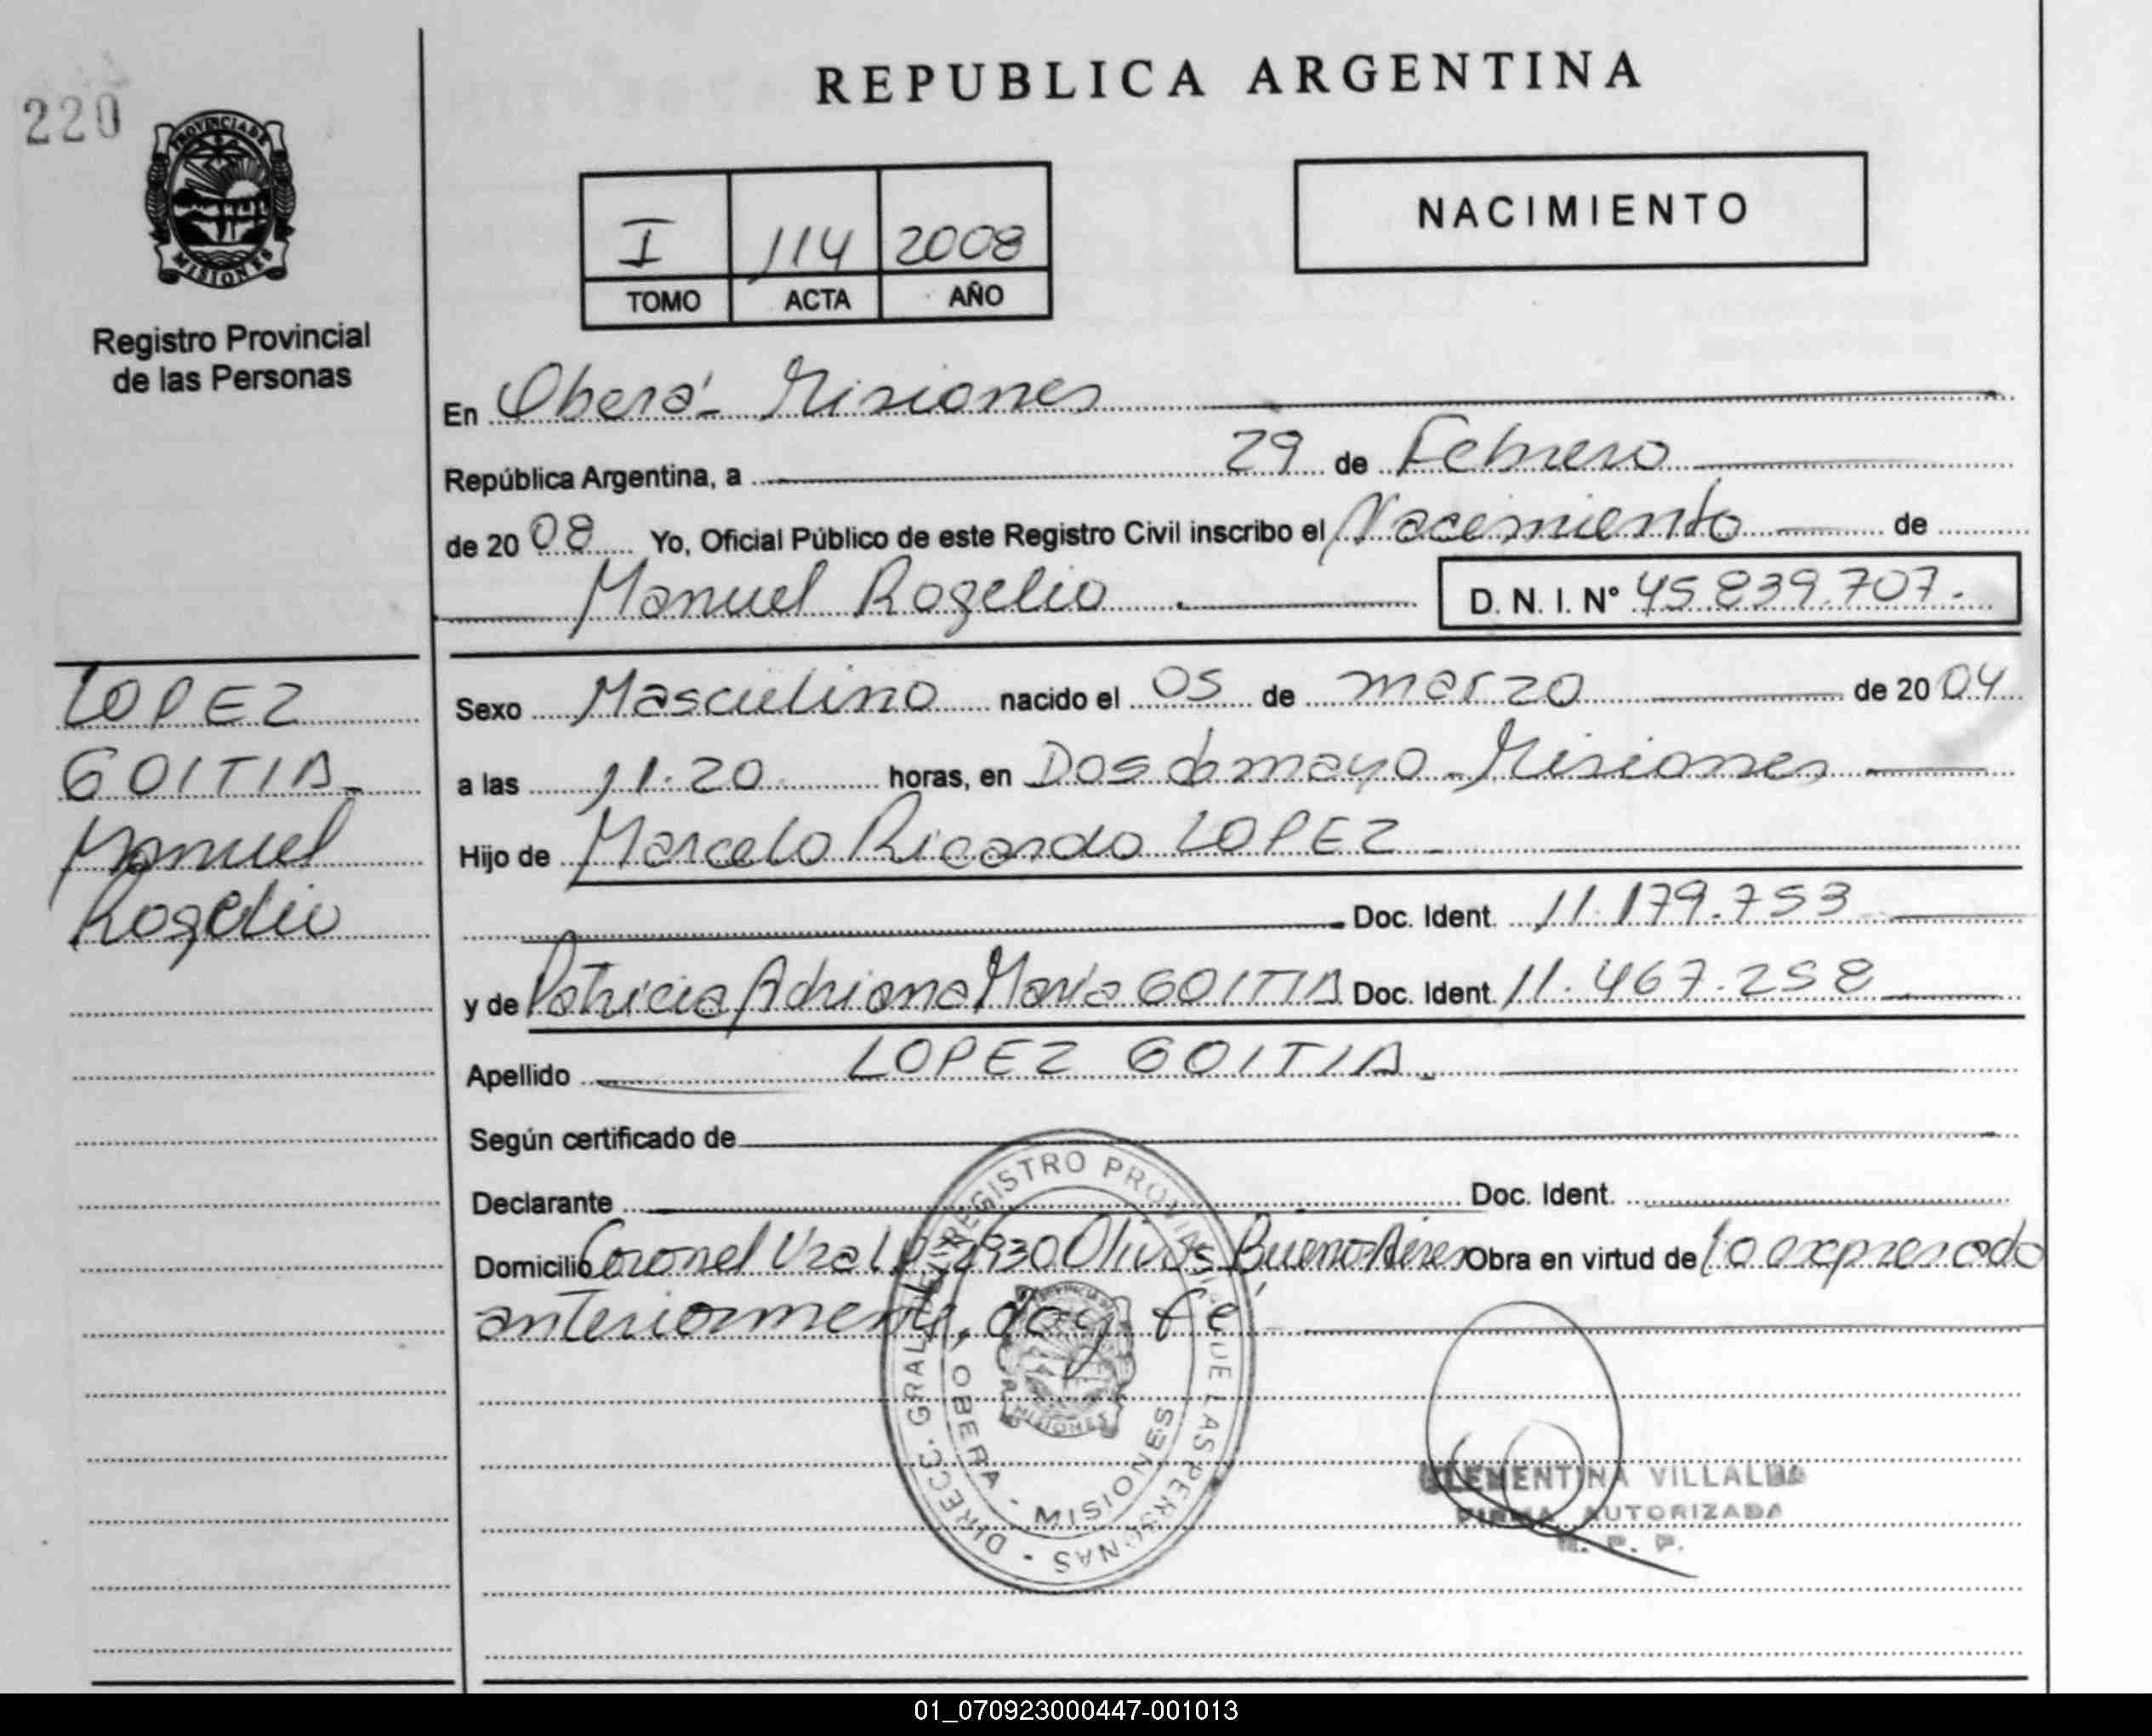 220
PROVINCIA DE
MISIONES
Registro Provincial
de las Personas
REPUBLICA ARGENTINA
I 114 2008
TOMO ACTA AÑO
NACIMIENTO
En Oberá - Misiones
República Argentina, a 29 de Febrero
de 20 08 Yo, Oficial Público de este Registro Civil inscribo el Nacimiento de
Manuel Rogelio. D. N. I. N° 45.839.707.-
LOPEZ
GOITIA-
Manuel
Rogelio
Sexo Masculino nacido el 05 de marzo de 20 04
a las 11.20 horas, en Dos de mayo - Misiones
Hijo de Marcelo Ricardo LOPEZ
Doc. Ident. 11.179.753
y de Patricia Adriana María GOITIA Doc. Ident. 11.467.258
Apellido LOPEZ GOITIA.
Según certificado de
Declarante Doc. Ident.
Domicilio Coronel Uzal N° 3930 Olivos Buenos Aires Obra en virtud de lo expresado
anteriormente, doy fé
DIRECC. GRAL. DEL REGISTRO PROVINCIAL DE LAS PERSONAS
OBERA - MISIONES
MISIONES
CLEMENTINA VILLALBA
FIRMA AUTORIZADA
R. P. P.
01_070923000447-001013